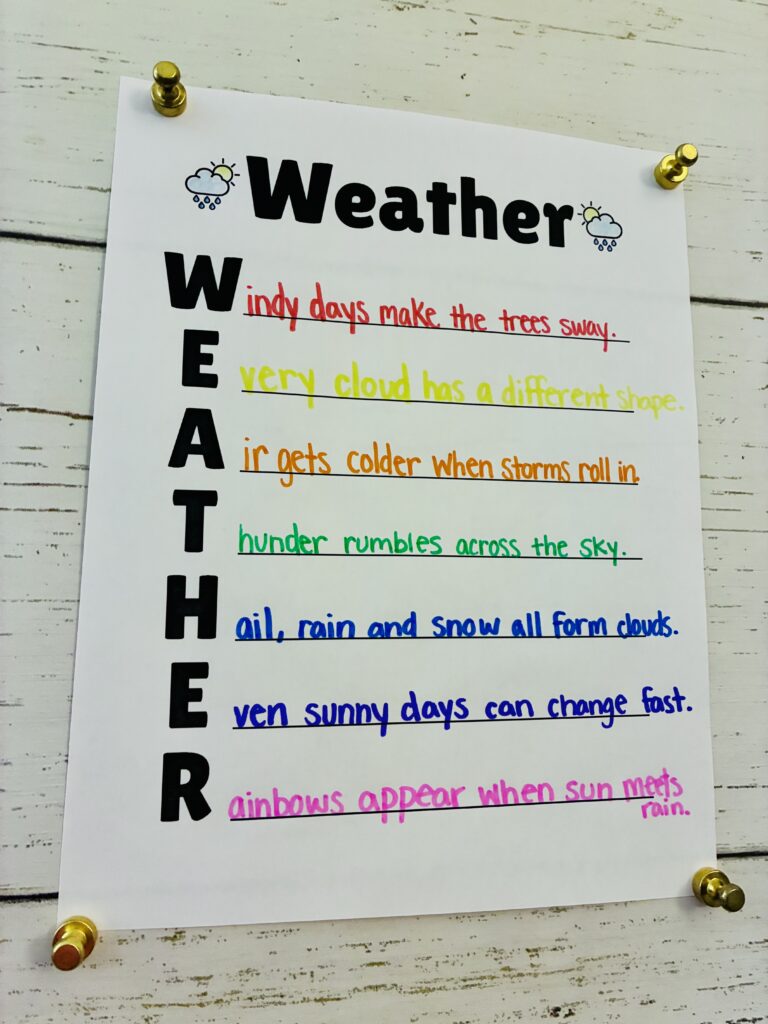 Weather
Windy days make the trees sway.
Every cloud has a different shape.
Air gets colder when storms roll in.
Thunder rumbles across the sky.
Hail, rain and snow all form clouds.
Even sunny days can change fast.
Rainbows appear when sun meets
rain.